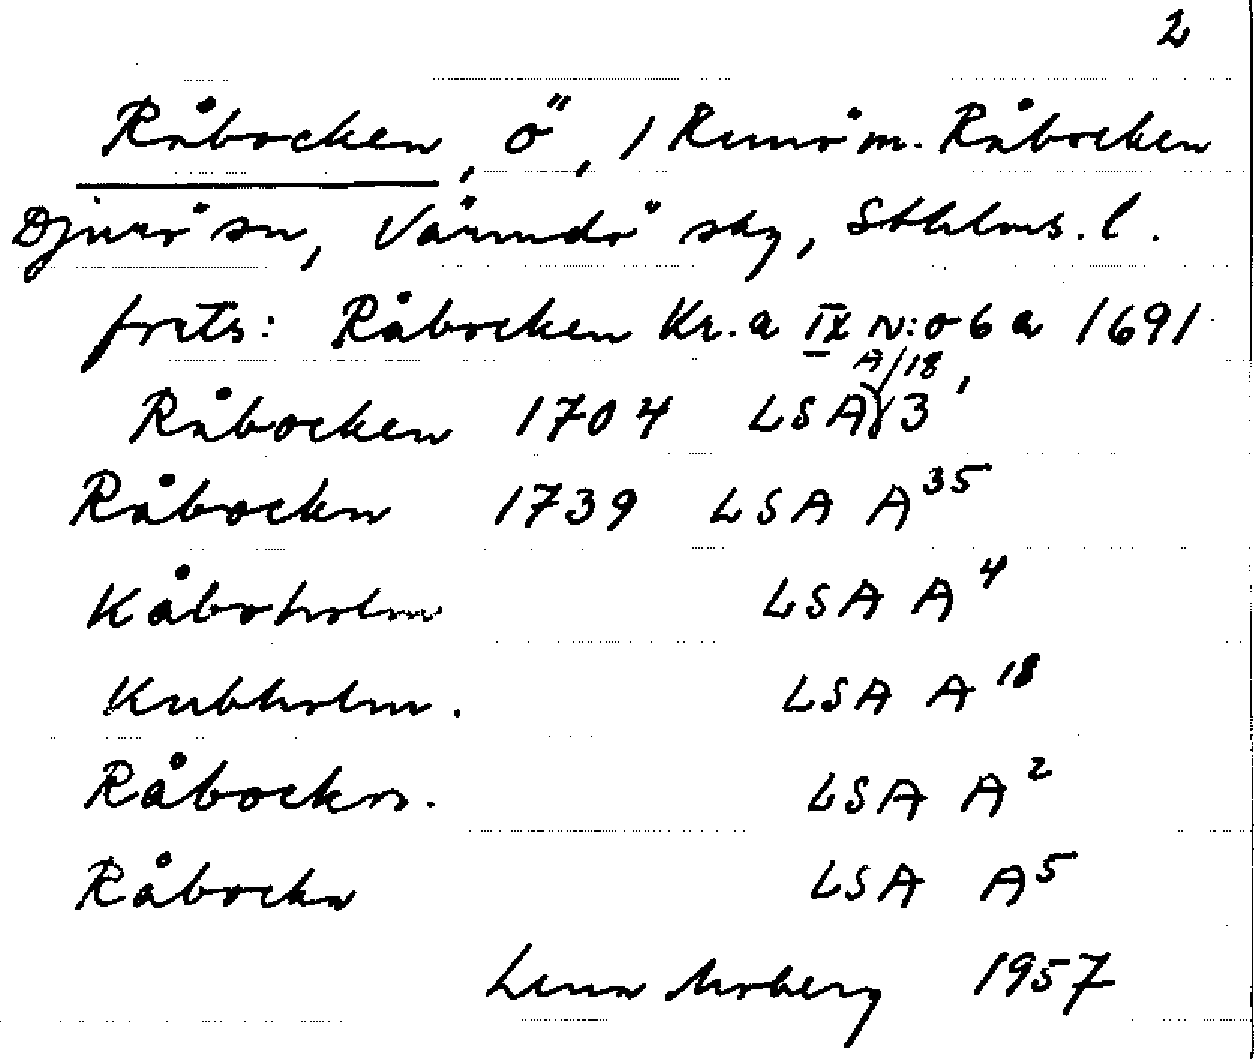 2
Råbocken, ö, / Runö m. Råbocken
Djurö sn, Värmdö skg, Sthlms. l.
Råbocken Kr. a IX N:o 6 a 1691
A/18
Råbocken 1704 LSA 3
Råbockn 1739 LSA A35
Kåboholm LSA A4
Kubbholm. LSA A18
Råbockn. LSA A2
Råbockn LSA A5
Lena Moberg 1957